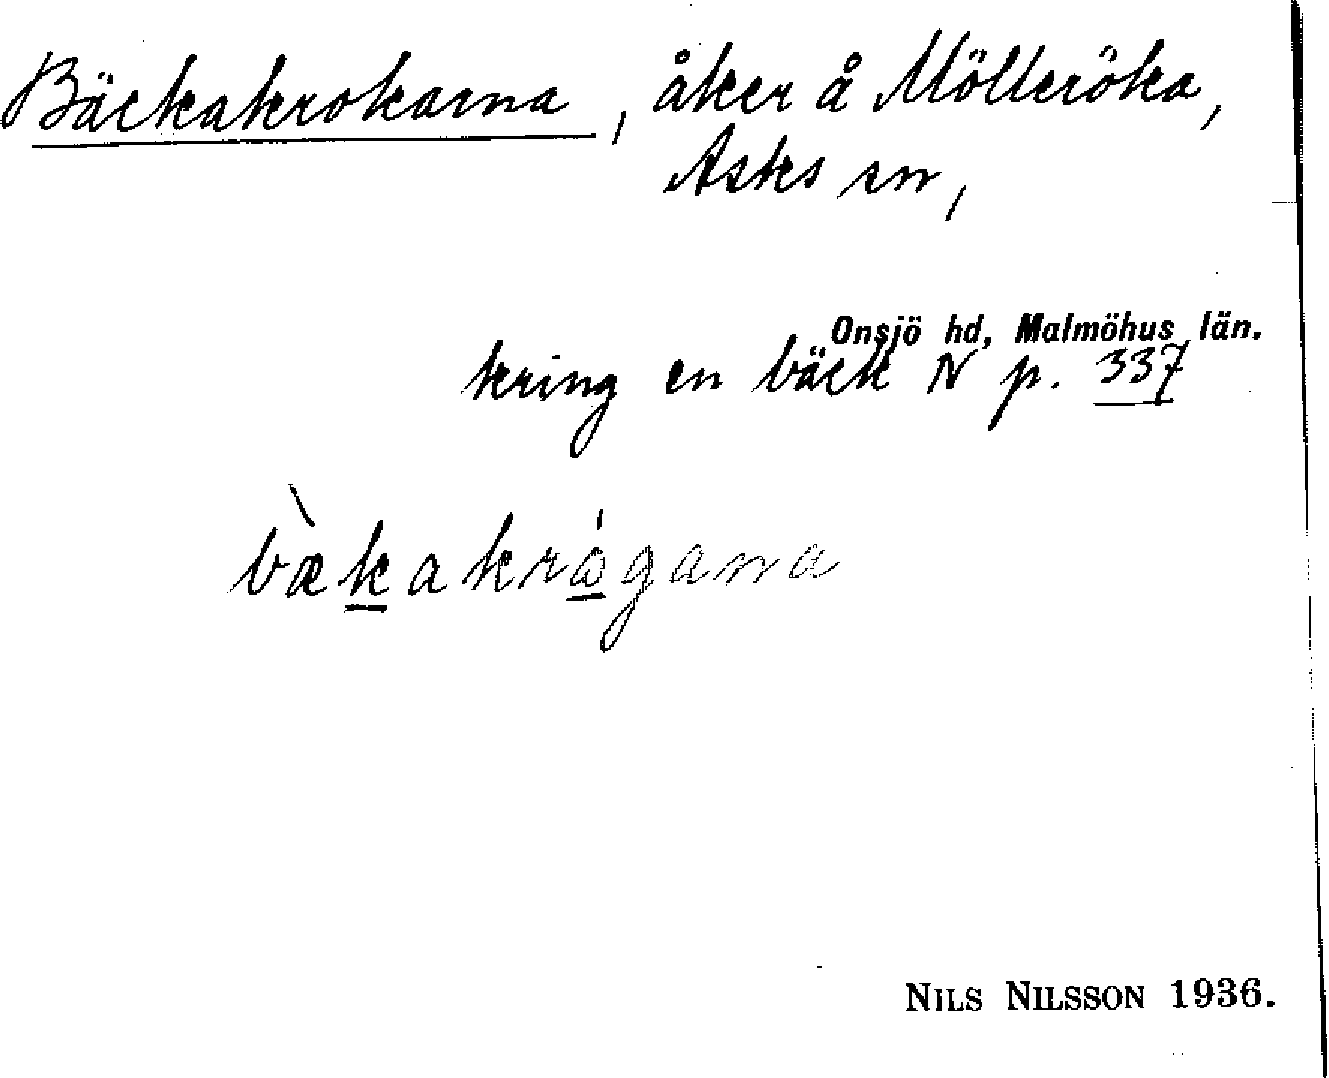 Bäckakrokarna, åker å Mölleröka,
Asks sn,
Onsjö hd, Malmöhus län.
kring en bäck N p. 337
bæ̀kakrågana
NILS NILSSON 1936.